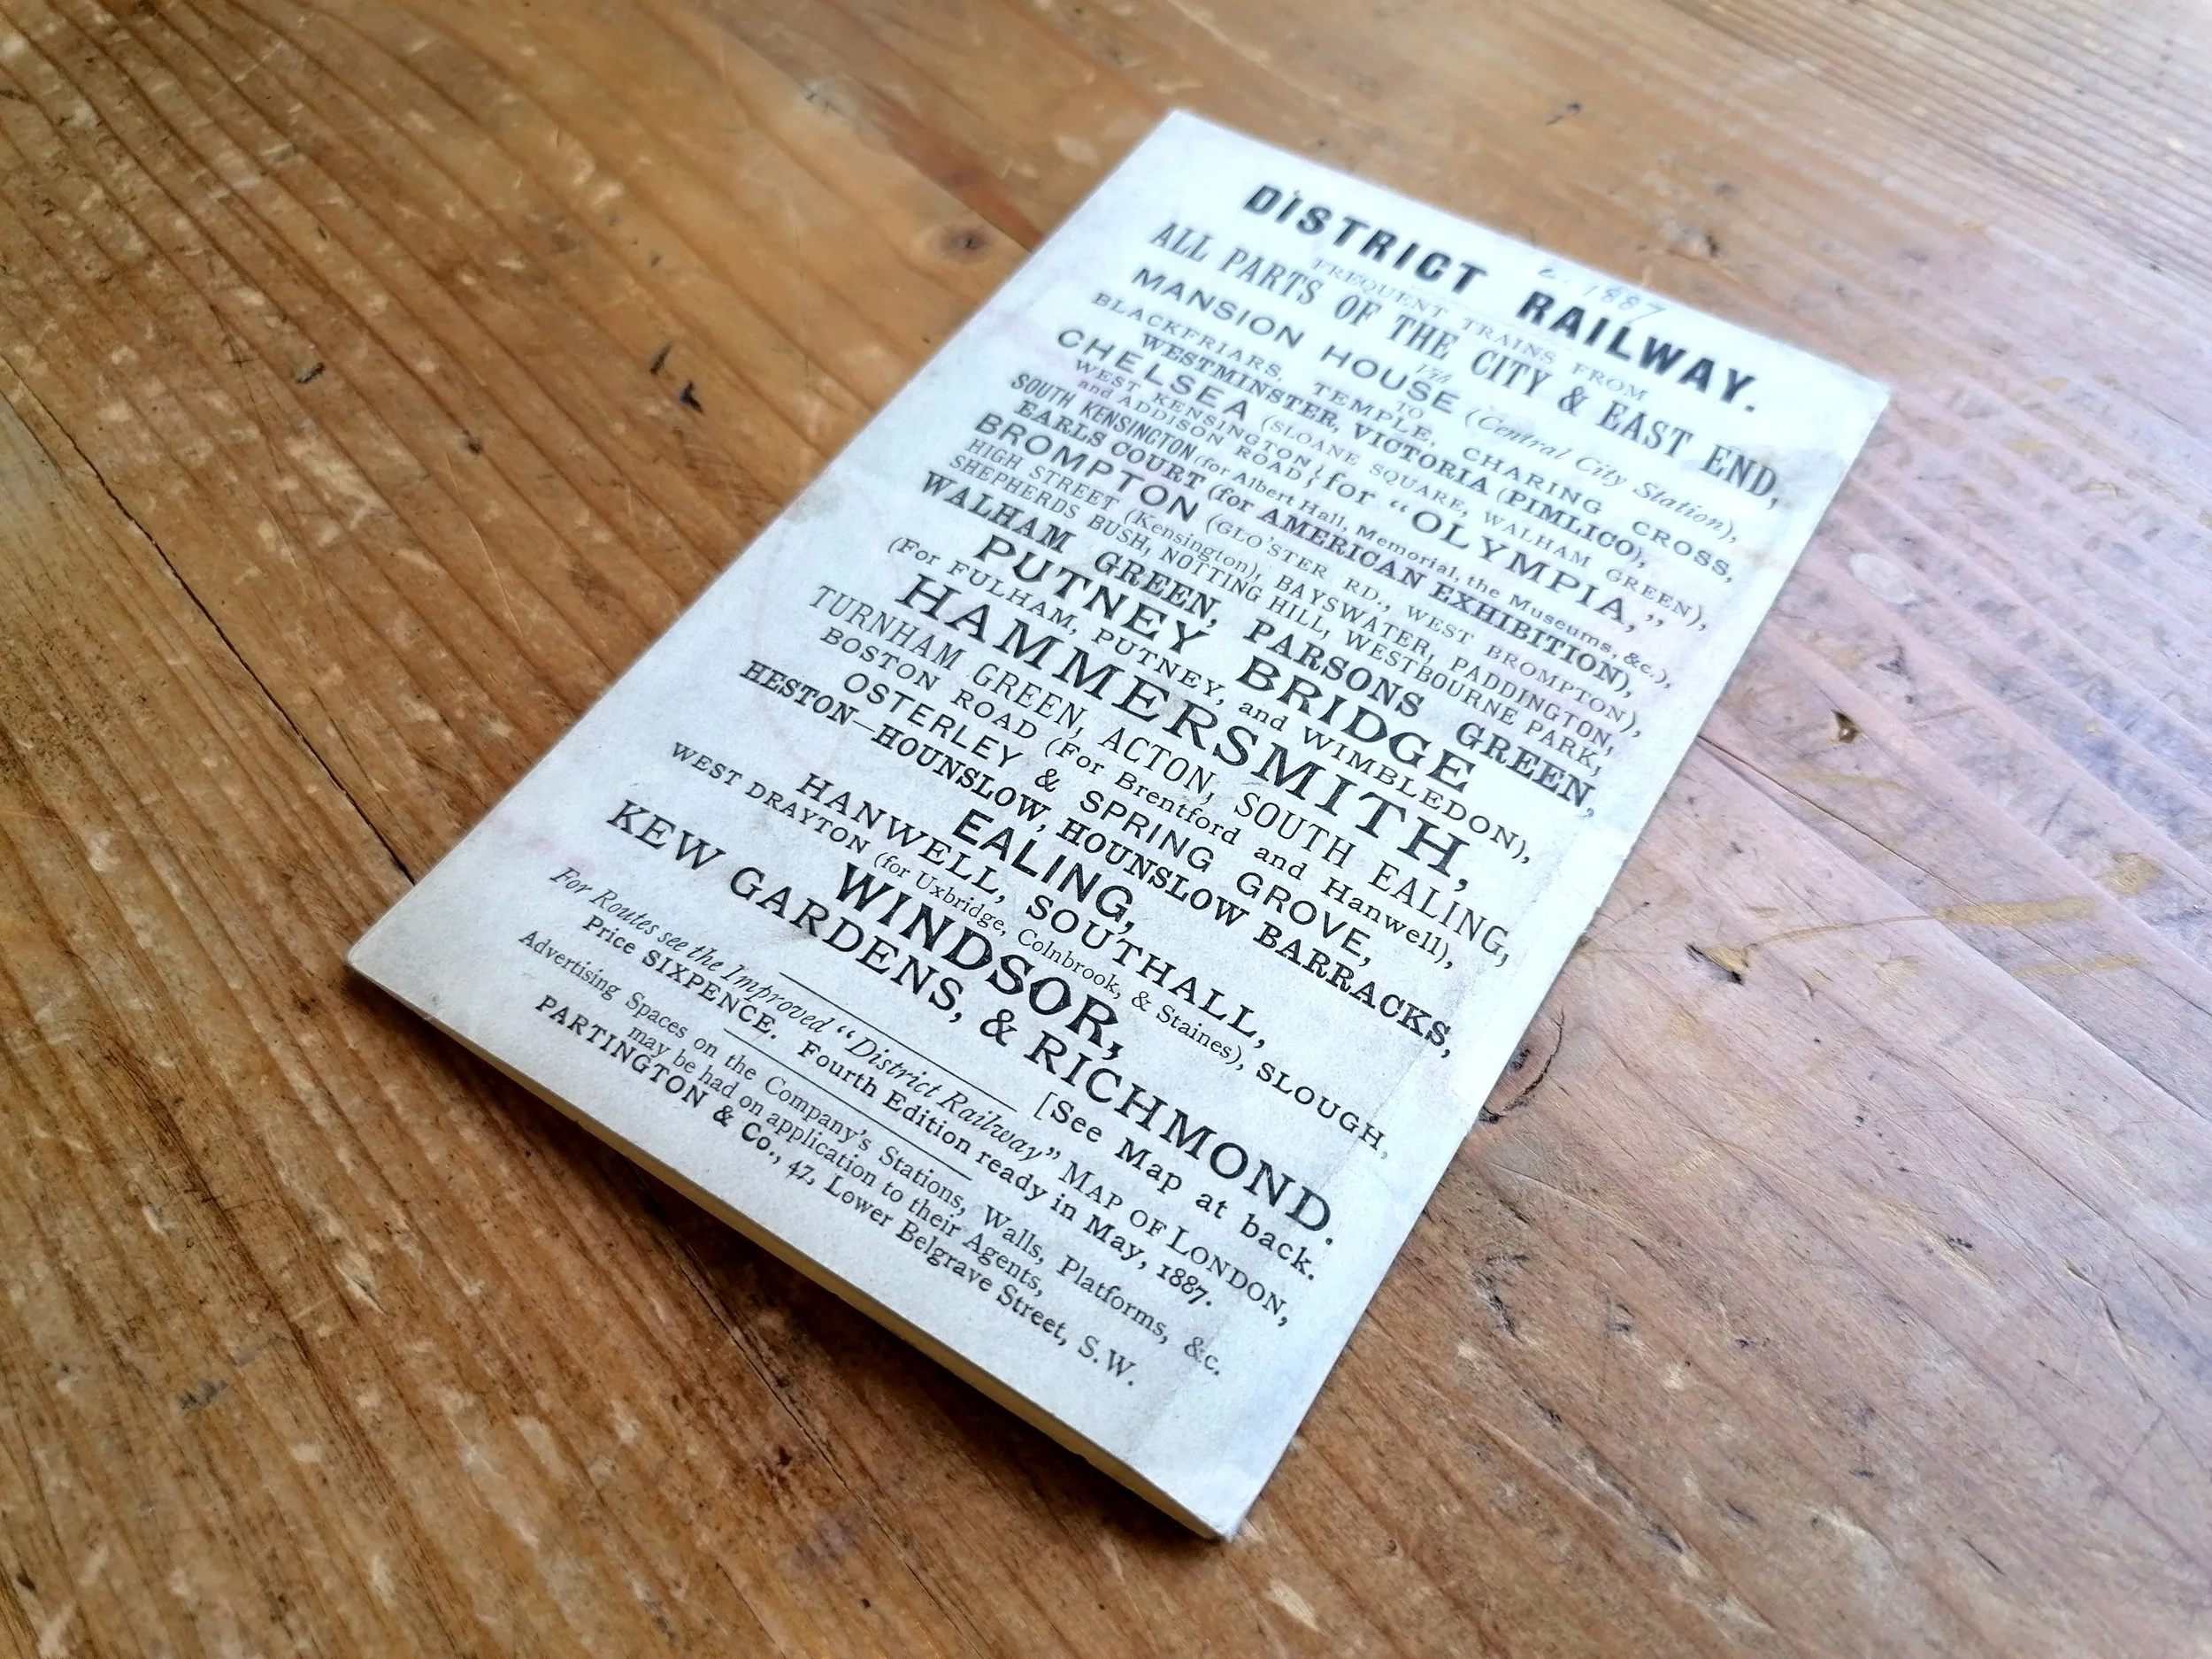 c. 1887
DISTRICT RAILWAY.
FREQUENT TRAINS FROM
ALL PARTS OF THE CITY & EAST END,
MANSION HOUSE (Central City Station),
Viâ
BLACKFRIARS, TEMPLE, CHARING CROSS,
WESTMINSTER, VICTORIA (PIMLICO),
TO
CHELSEA (SLOANE SQUARE, WALHAM GREEN),
WEST KENSINGTON } for "OLYMPIA,"
and ADDISON ROAD,
SOUTH KENSINGTON (for Albert Hall, Memorial, the Museums, &c.),
EARLS COURT (for AMERICAN EXHIBITION),
BROMPTON (GLO'STER RD., WEST BROMPTON),
HIGH STREET (Kensington), BAYSWATER, PADDINGTON,
SHEPHERDS BUSH, NOTTING HILL, WESTBOURNE PARK,
WALHAM GREEN, PARSONS GREEN,
PUTNEY BRIDGE
(For FULHAM, PUTNEY, and WIMBLEDON),
HAMMERSMITH,
TURNHAM GREEN, ACTON, SOUTH EALING,
BOSTON ROAD (For Brentford and Hanwell),
OSTERLEY & SPRING GROVE,
HESTON—HOUNSLOW, HOUNSLOW BARRACKS,
EALING,
HANWELL, SOUTHALL,
WEST DRAYTON (for Uxbridge, Colnbrook, & Staines), SLOUGH,
WINDSOR,
KEW GARDENS, & RICHMOND.
[See Map at back.
For Routes see the Improved "District Railway" MAP OF LONDON,
Price SIXPENCE. Fourth Edition ready in May, 1887.
Advertising Spaces on the Company's Stations, Walls, Platforms, &c.
may be had on application to their Agents,
PARTINGTON & Co., 47, Lower Belgrave Street, S.W.